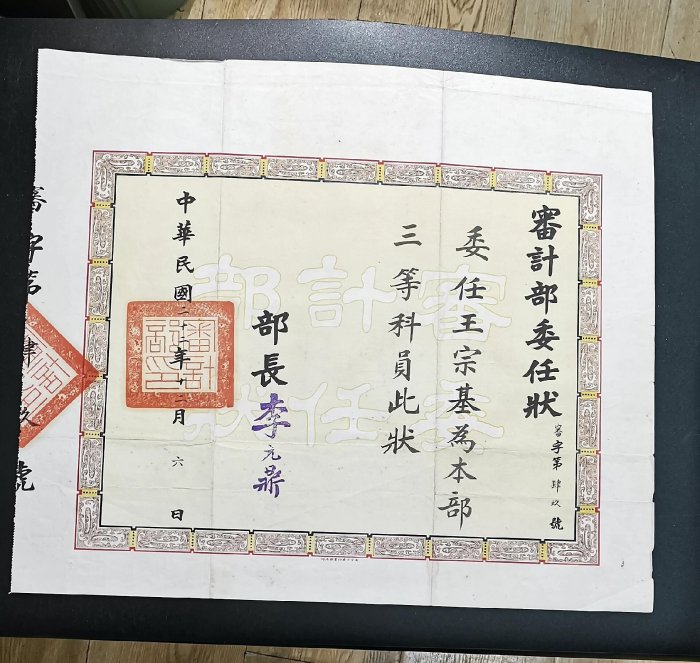 審計部委任狀
審字第肆玖號
委任王宗基為本部
三等科員此狀
部長李元鼎
中華民國二十二年十二月六日
審計部
委任狀
審計部印
審字第肆玖號